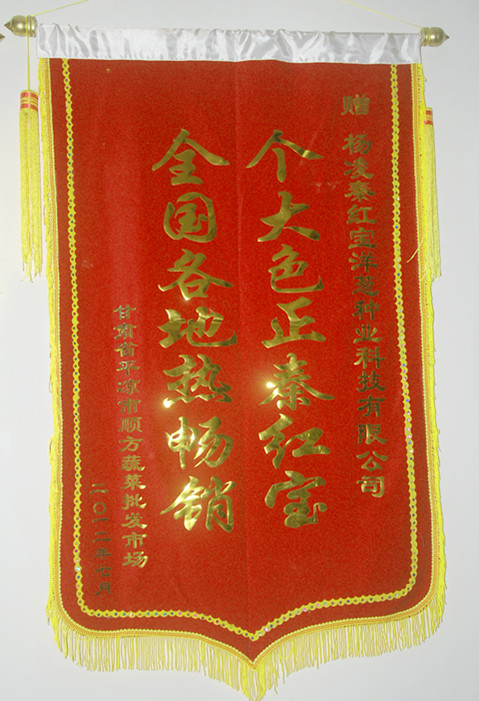 赠 杨凌秦红宝洋葱种业科技有限公司
个大色正秦红宝
全国各地热畅销
甘肃省平凉市顺方蔬菜批发市场
二〇一二年七月